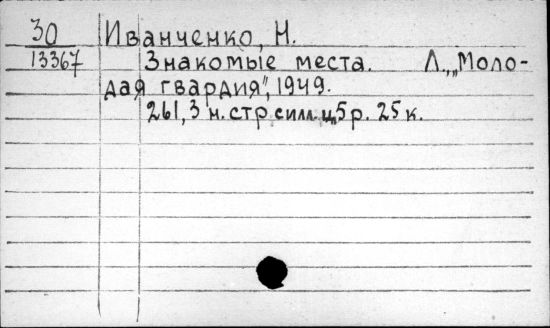 30 Иванченко, Н.
13367 Знакомые места. Л., „Моло-
дая гвардия", 1949.
261, 3 н. стр. с илл. ц. 5 р. 25 к.